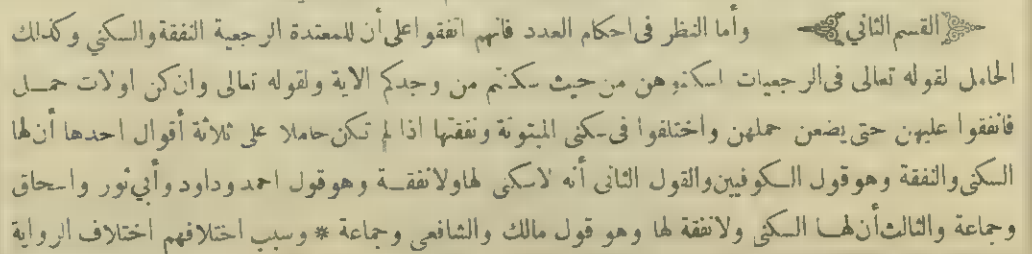 القسم الثاني وأما النظر فى احكام العدد فانهم اتفقوا على أن للمعتدة الرجعية النفقة والسكني وكذلك
الحامل لقوله تعالى فى الرجعيات اسكنوهن من حيث سكنتم من وجدكم الاية ولقوله تعالى وان كن اولات حمل
فانفقوا عليهن حتى يضعن حملهن واختلفوا فى سكنى المبتوتة ونفقتها اذا لم تكن حاملا على ثلاثة أقوال احدها أن لها
السكنى والنفقة وهو قول الكوفيين والقول الثانى أنه لاسكنى لها ولا نفقة وهو قول احمد وداود وأبي ثور واسحاق
وجماعة والثالث أن لها السكنى ولا نفقة لها وهو قول مالك والشافعى وجماعة * وسبب اختلافهم اختلاف الرواية